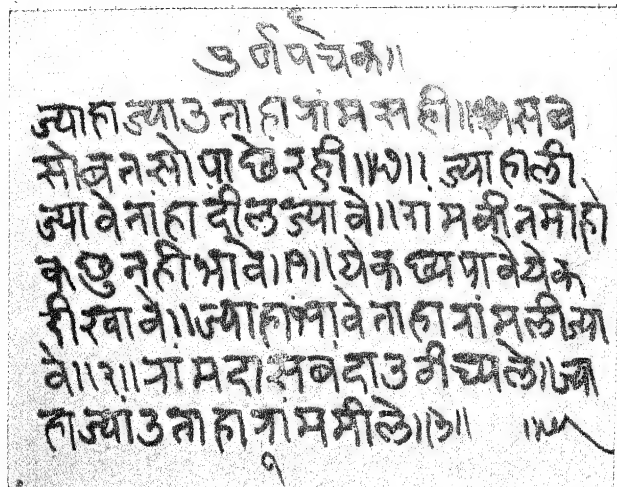 ६
पुर्ण पंचक॥
ज्याहा ज्याउ ताहा रांम सही॥ सब
सोबत सो पाछे रही॥धृ॥ ज्याहा ली
ज्यावे तांहा दील ज्यावे॥ राम बीन मोहो
कछु नही भावे॥१॥ येक छपावे येक
दीखावे॥ ज्याहां भावे ताहा रांम ली ज्या
वे॥२॥ रांमदास बंदा उठी च्यले॥ ज्या
हा ज्यांउ ताहा रांम मीले॥३॥
१